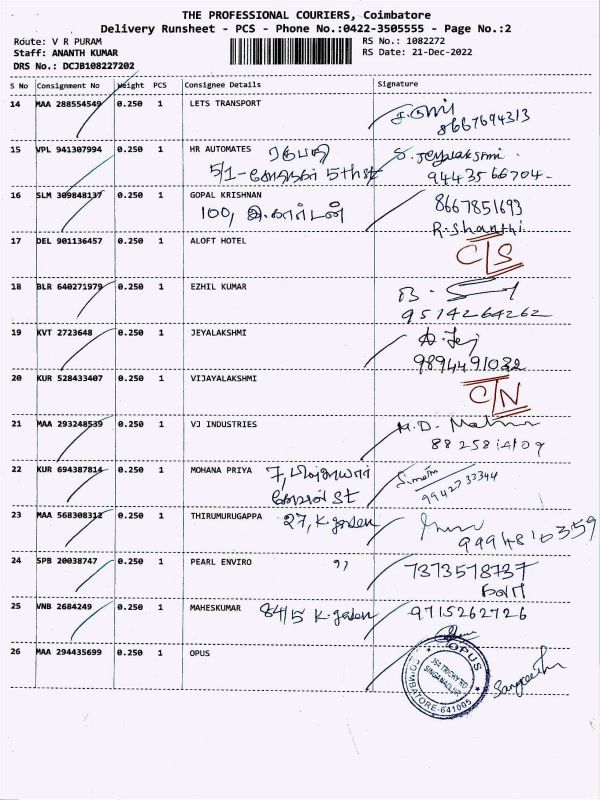 THE PROFESSIONAL COURIERS, Coimbatore
Delivery Runsheet - PCS - Phone No.:0422-3505555 - Page No.:2
Route: V R PURAM
RS No.: 1082272
Staff: ANANTH KUMAR
RS Date: 21-Dec-2022
DRS No.: DCJB108227202
S No Consignment No Weight PCS Consignee Details Signature
14 MAA 288554549 0.250 1 LETS TRANSPORT
8667694313
15 VPL 941307994 0.250 1 HR AUTOMATES S. Jeyalakshmi
5/1- 5th st 9443566704-
16 SLM 309848137 0.250 1 GOPAL KRISHNAN 8667851693
100, R.Shanthi
17 DEL 901136457 0.250 1 ALOFT HOTEL
C/S
18 BLR 640271979 0.250 1 EZHIL KUMAR
9514264262
19 KVT 2723648 0.250 1 JEYALAKSHMI
9894491032
20 KUR 528433407 0.250 1 VIJAYALAKSHMI
C/N
21 MAA 293248539 0.250 1 VJ INDUSTRIES M.D.
22 KUR 694387814 0.250 1 MOHANA PRIYA 7,
St 9942733344
23 MAA 568308312 0.250 1 THIRUMURUGAPPA 27, K.garden
9994810359
24 SPB 20038747 0.250 1 PEARL ENVIRO " 7373578737
25 VNB 2684249 0.250 1 MAHESKUMAR 84/5 K.garden 9715262726
26 MAA 294435699 0.250 1 OPUS
OPUS
TRICHY RD
SINGANALLUR
COIMBATORE-641005
Sangeetha